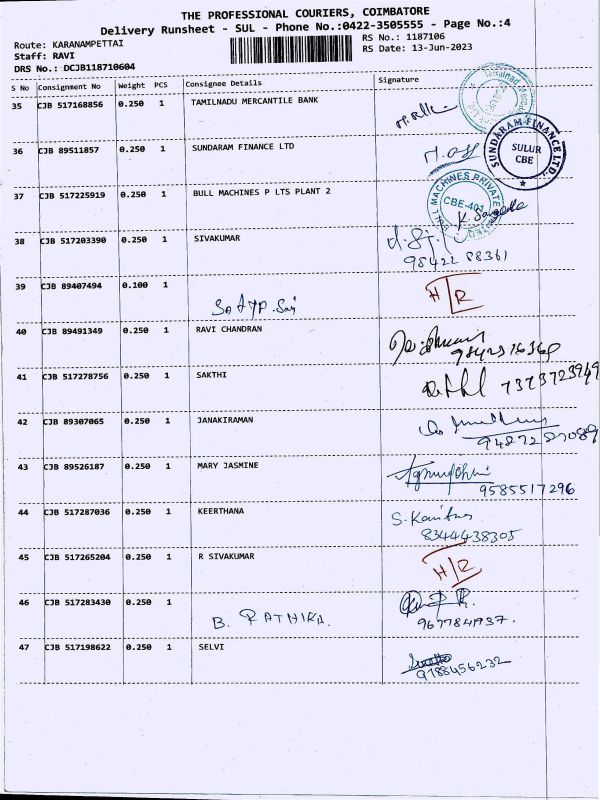 THE PROFESSIONAL COURIERS, COIMBATORE
Delivery Runsheet - SUL - Phone No.:0422-3505555 - Page No.:4
Route: KARANAMPETTAI
RS No.: 1187106
Staff: RAVI
RS Date: 13-Jun-2023
DRS No.: DCJB118710604
S No Consignment No Weight PCS Consignee Details Signature
35 CJB 517168856 0.250 1 TAMILNADU MERCANTILE BANK
36 CJB 89511857 0.250 1 SUNDARAM FINANCE LTD
SUNDARAM FINANCE LTD.
SULUR
CBE
37 CJB 517225919 0.250 1 BULL MACHINES P LTS PLANT 2
BULL MACHINES PRIVATE LIMITED
CBE-401
38 CJB 517203390 0.250 1 SIVAKUMAR
95422 88361
39 CJB 89407494 0.100 1
H/R
40 CJB 89491349 0.250 1 RAVI CHANDRAN
41 CJB 517278756 0.250 1 SAKTHI
7373723949
42 CJB 89307065 0.250 1 JANAKIRAMAN
43 CJB 89526187 0.250 1 MARY JASMINE
9585517296
44 CJB 517287036 0.250 1 KEERTHANA
8344438305
45 CJB 517265204 0.250 1 R SIVAKUMAR
H/R
46 CJB 517283430 0.250 1 B. RATHIKA.
47 CJB 517198622 0.250 1 SELVI
9788456232